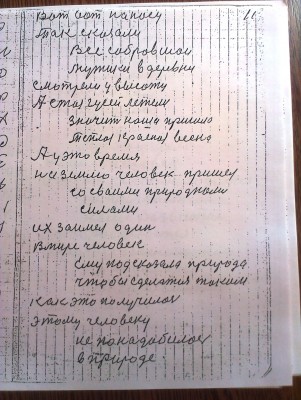 11
Вот вот на носу
Так сказали
Все собравшои
мужики в деревни
смотрели у высоту
А стая гусей летели
значит наша пришла
Теплая красная весна
А у это время
на землю человек пришел
со сваими природными
силами
их заимел один
в мире человек
Ему подсказала природа
чтобы сделатся таким
как это получилос
этому человеку
не понадобилос
в природе